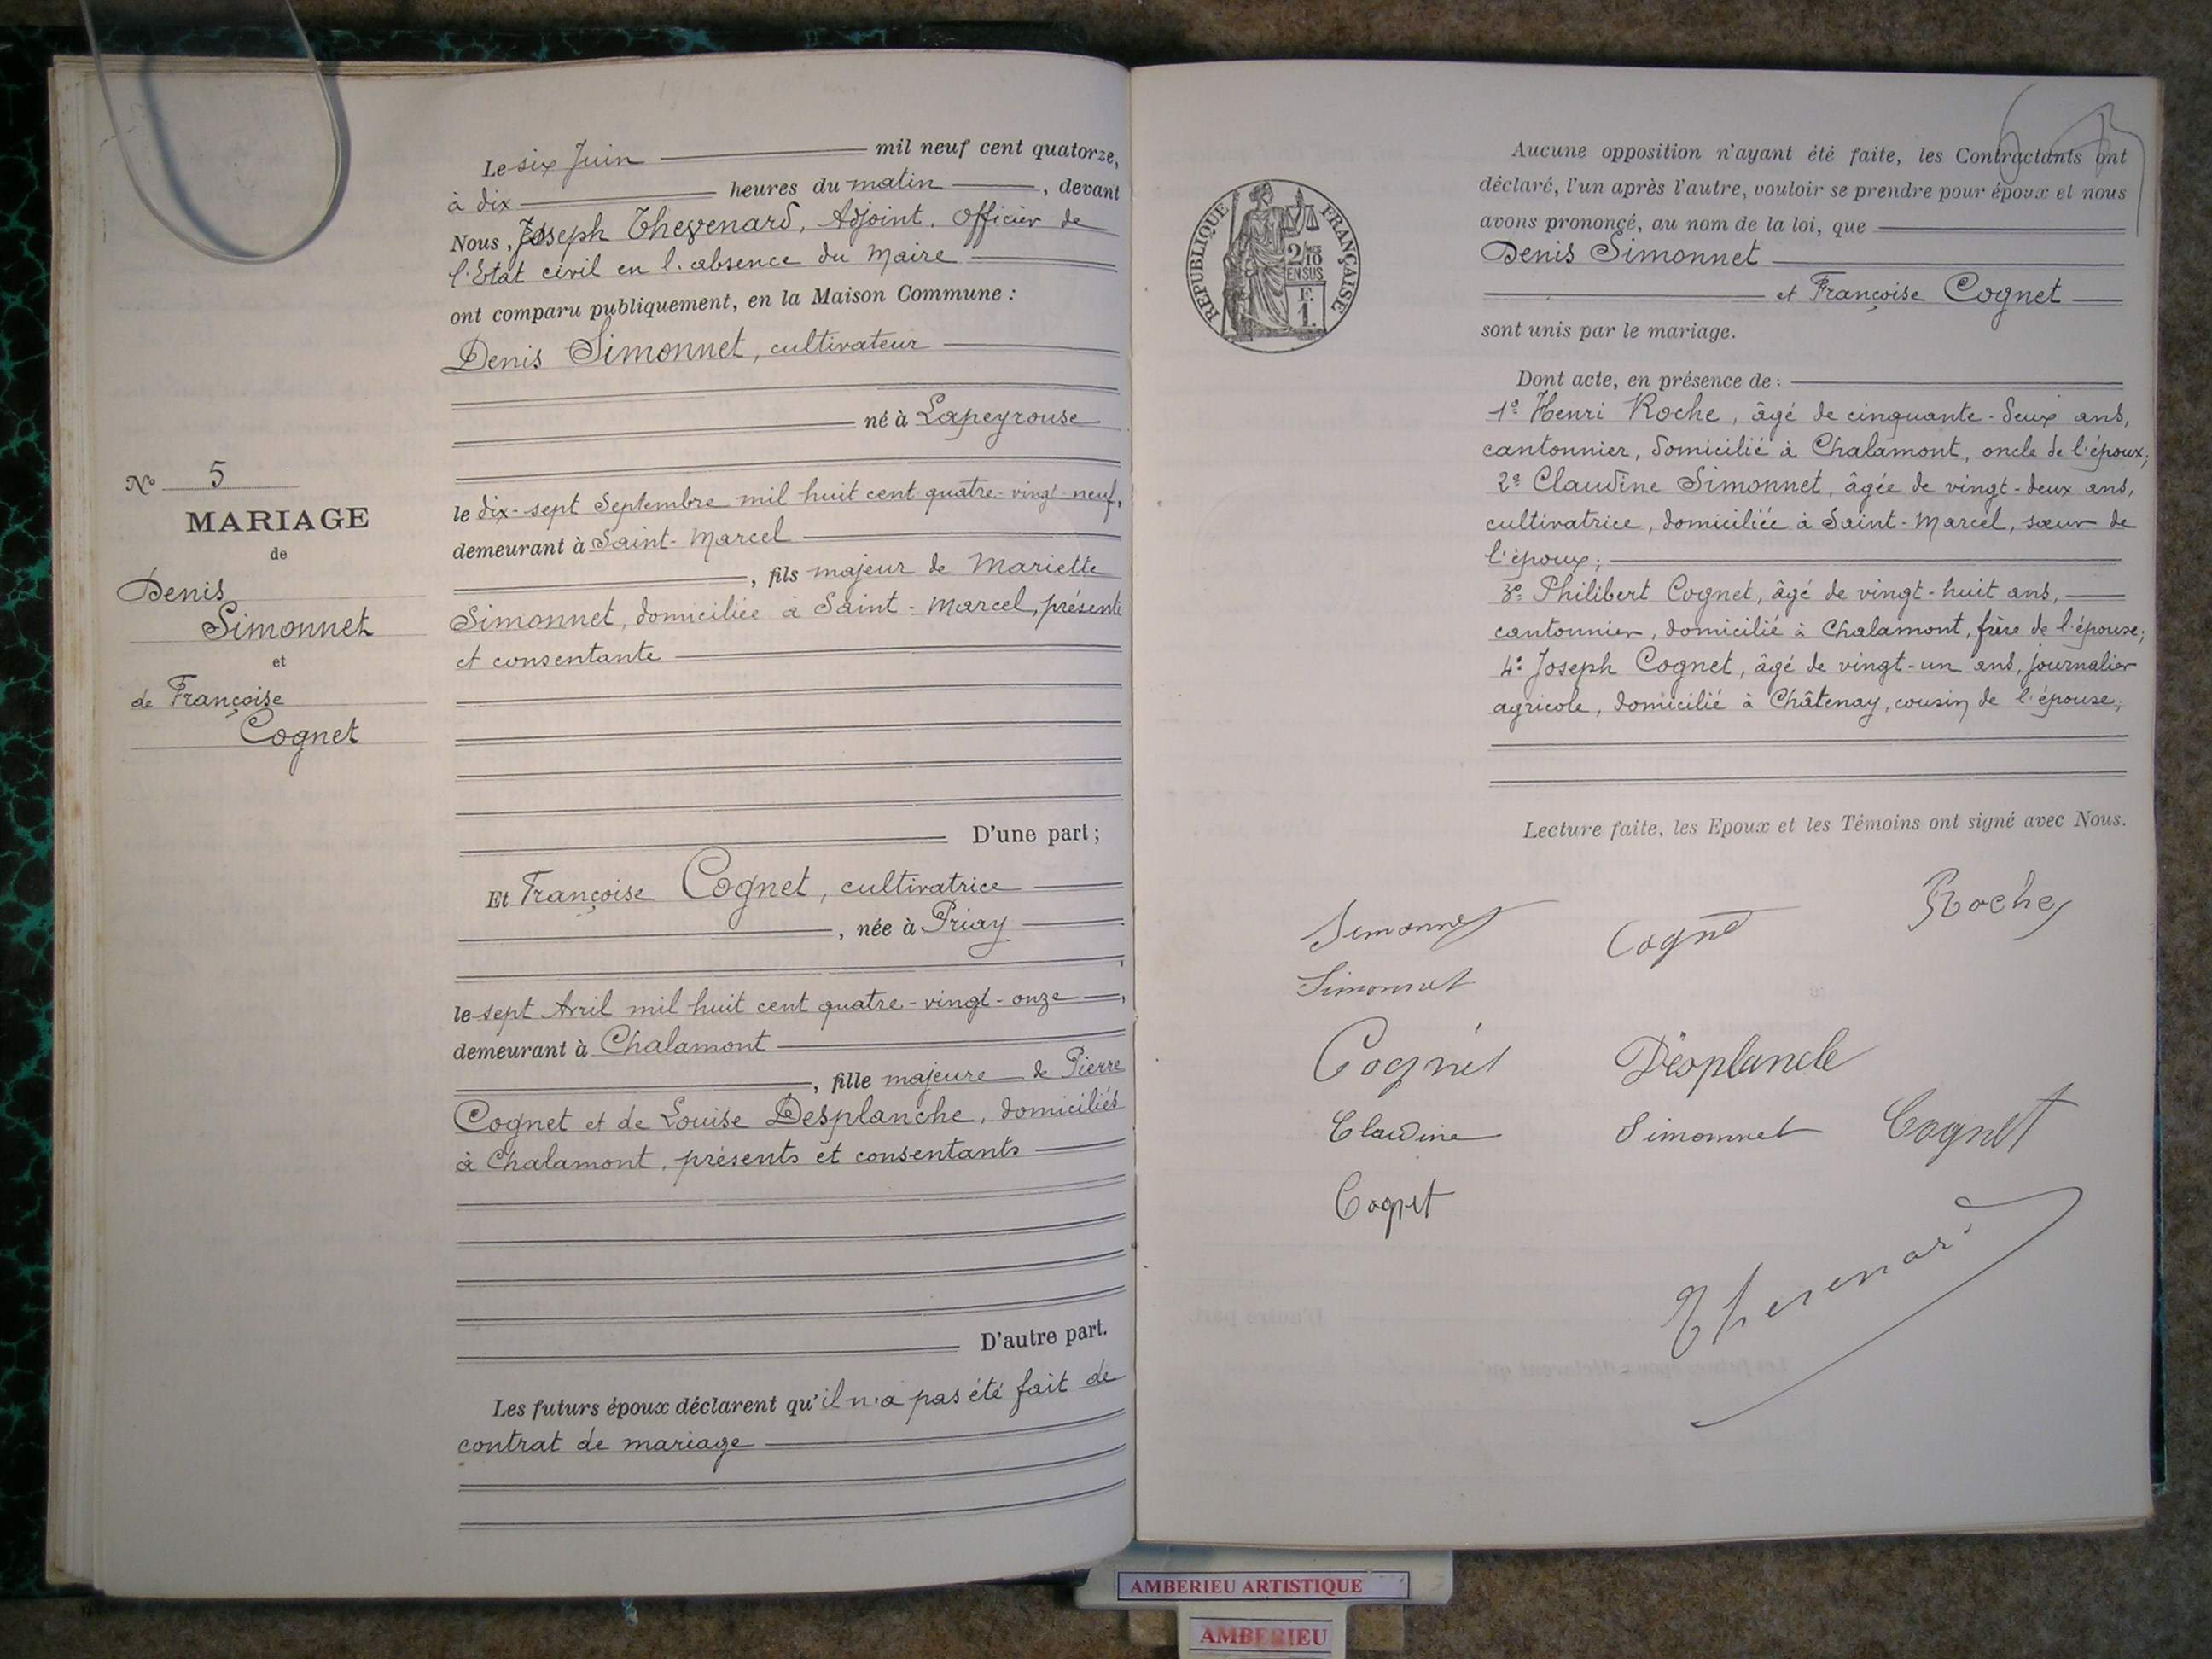 N° 5
MARIAGE
de
Denis
Simonnet
et
de Françoise
Cognet
Le six Juin mil neuf cent quatorze,
à dix heures du matin, devant
Nous, Joseph Thevenard, Adjoint, Officier de
l'Etat civil en l'absence du Maire
ont comparu publiquement, en la Maison Commune :
Denis Simonnet, cultivateur
né à Lapeyrouse
le dix-sept Septembre mil huit cent quatre-vingt-neuf,
demeurant à Saint-Marcel
, fils majeur de Mariette
Simonnet, domiciliée à Saint-Marcel, présente
et consentante
D'une part ;
Et Françoise Cognet, cultivatrice
, née à Priay
le sept Avril mil huit cent quatre-vingt-onze,
demeurant à Chalamont
, fille majeure de Pierre
Cognet et de Louise Desplanche, domiciliés
à Chalamont, présents et consentants
D'autre part.
Les futurs époux déclarent qu'il n'a pas été fait de
contrat de mariage
REPUBLIQUE FRANÇAISE
2/10
EN SUS
F.
1.
Aucune opposition n'ayant été faite, les Contractants ont
déclaré, l'un après l'autre, vouloir se prendre pour époux et nous
avons prononcé, au nom de la loi, que
Denis Simonnet
et Françoise Cognet
sont unis par le mariage.
Dont acte, en présence de :
1° Henri Roche, âgé de cinquante-deux ans,
cantonnier, domicilié à Chalamont, oncle de l'époux;
2° Claudine Simonnet, âgée de vingt-deux ans,
cultivatrice, domiciliée à Saint-Marcel, sœur de
l'époux;
3° Philibert Cognet, âgé de vingt-huit ans,
cantonnier, domicilié à Chalamont, frère de l'épouse;
4° Joseph Cognet, âgé de vingt-un ans, journalier
agricole, domicilié à Châtenay, cousin de l'épouse,
Lecture faite, les Epoux et les Témoins ont signé avec Nous.
Simonnet Cogne Roche
Simonnet
Cognet Desplancle
Claudine Simonnet Cognet
Cognet
Thevenard
AMBERIEU ARTISTIQUE
AMBERIEU